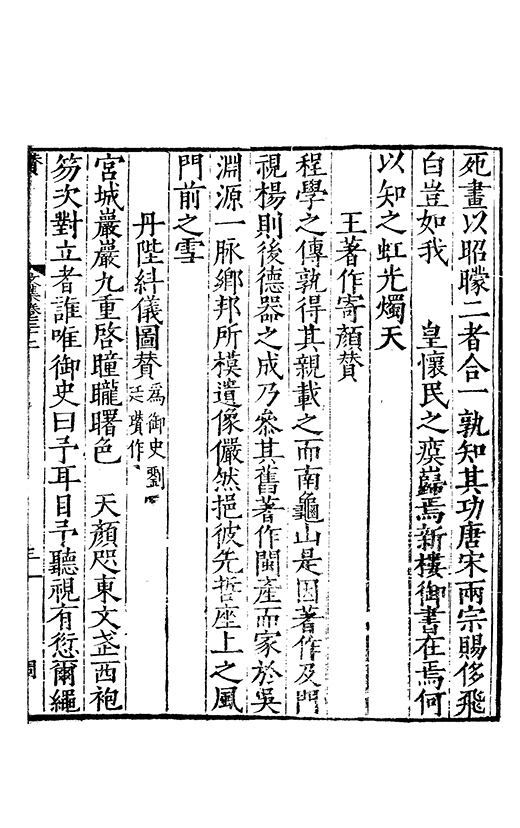 死畫以昭矇二者合一孰知其功唐宋兩宗賜侈飛
白豈如我　皇懷民之瘼巋焉新樓御書在焉何
以知之虹光燭天
王著作寄顏賛
程學之傳孰得其親載之而南龜山是因著作及門
視楊則後德器之成乃參其舊著作閩產而家於吳
淵源一脉鄉邦所模遺像儼然挹彼先哲座上之風
門前之雪
丹陛糾儀圖賛為御史劉廷瓚作
宮城巖巖九重啓曈曨曙色　天顏咫東文茋西袍
笏次對立者誰唯御史曰予耳目予聽視有愆爾繩